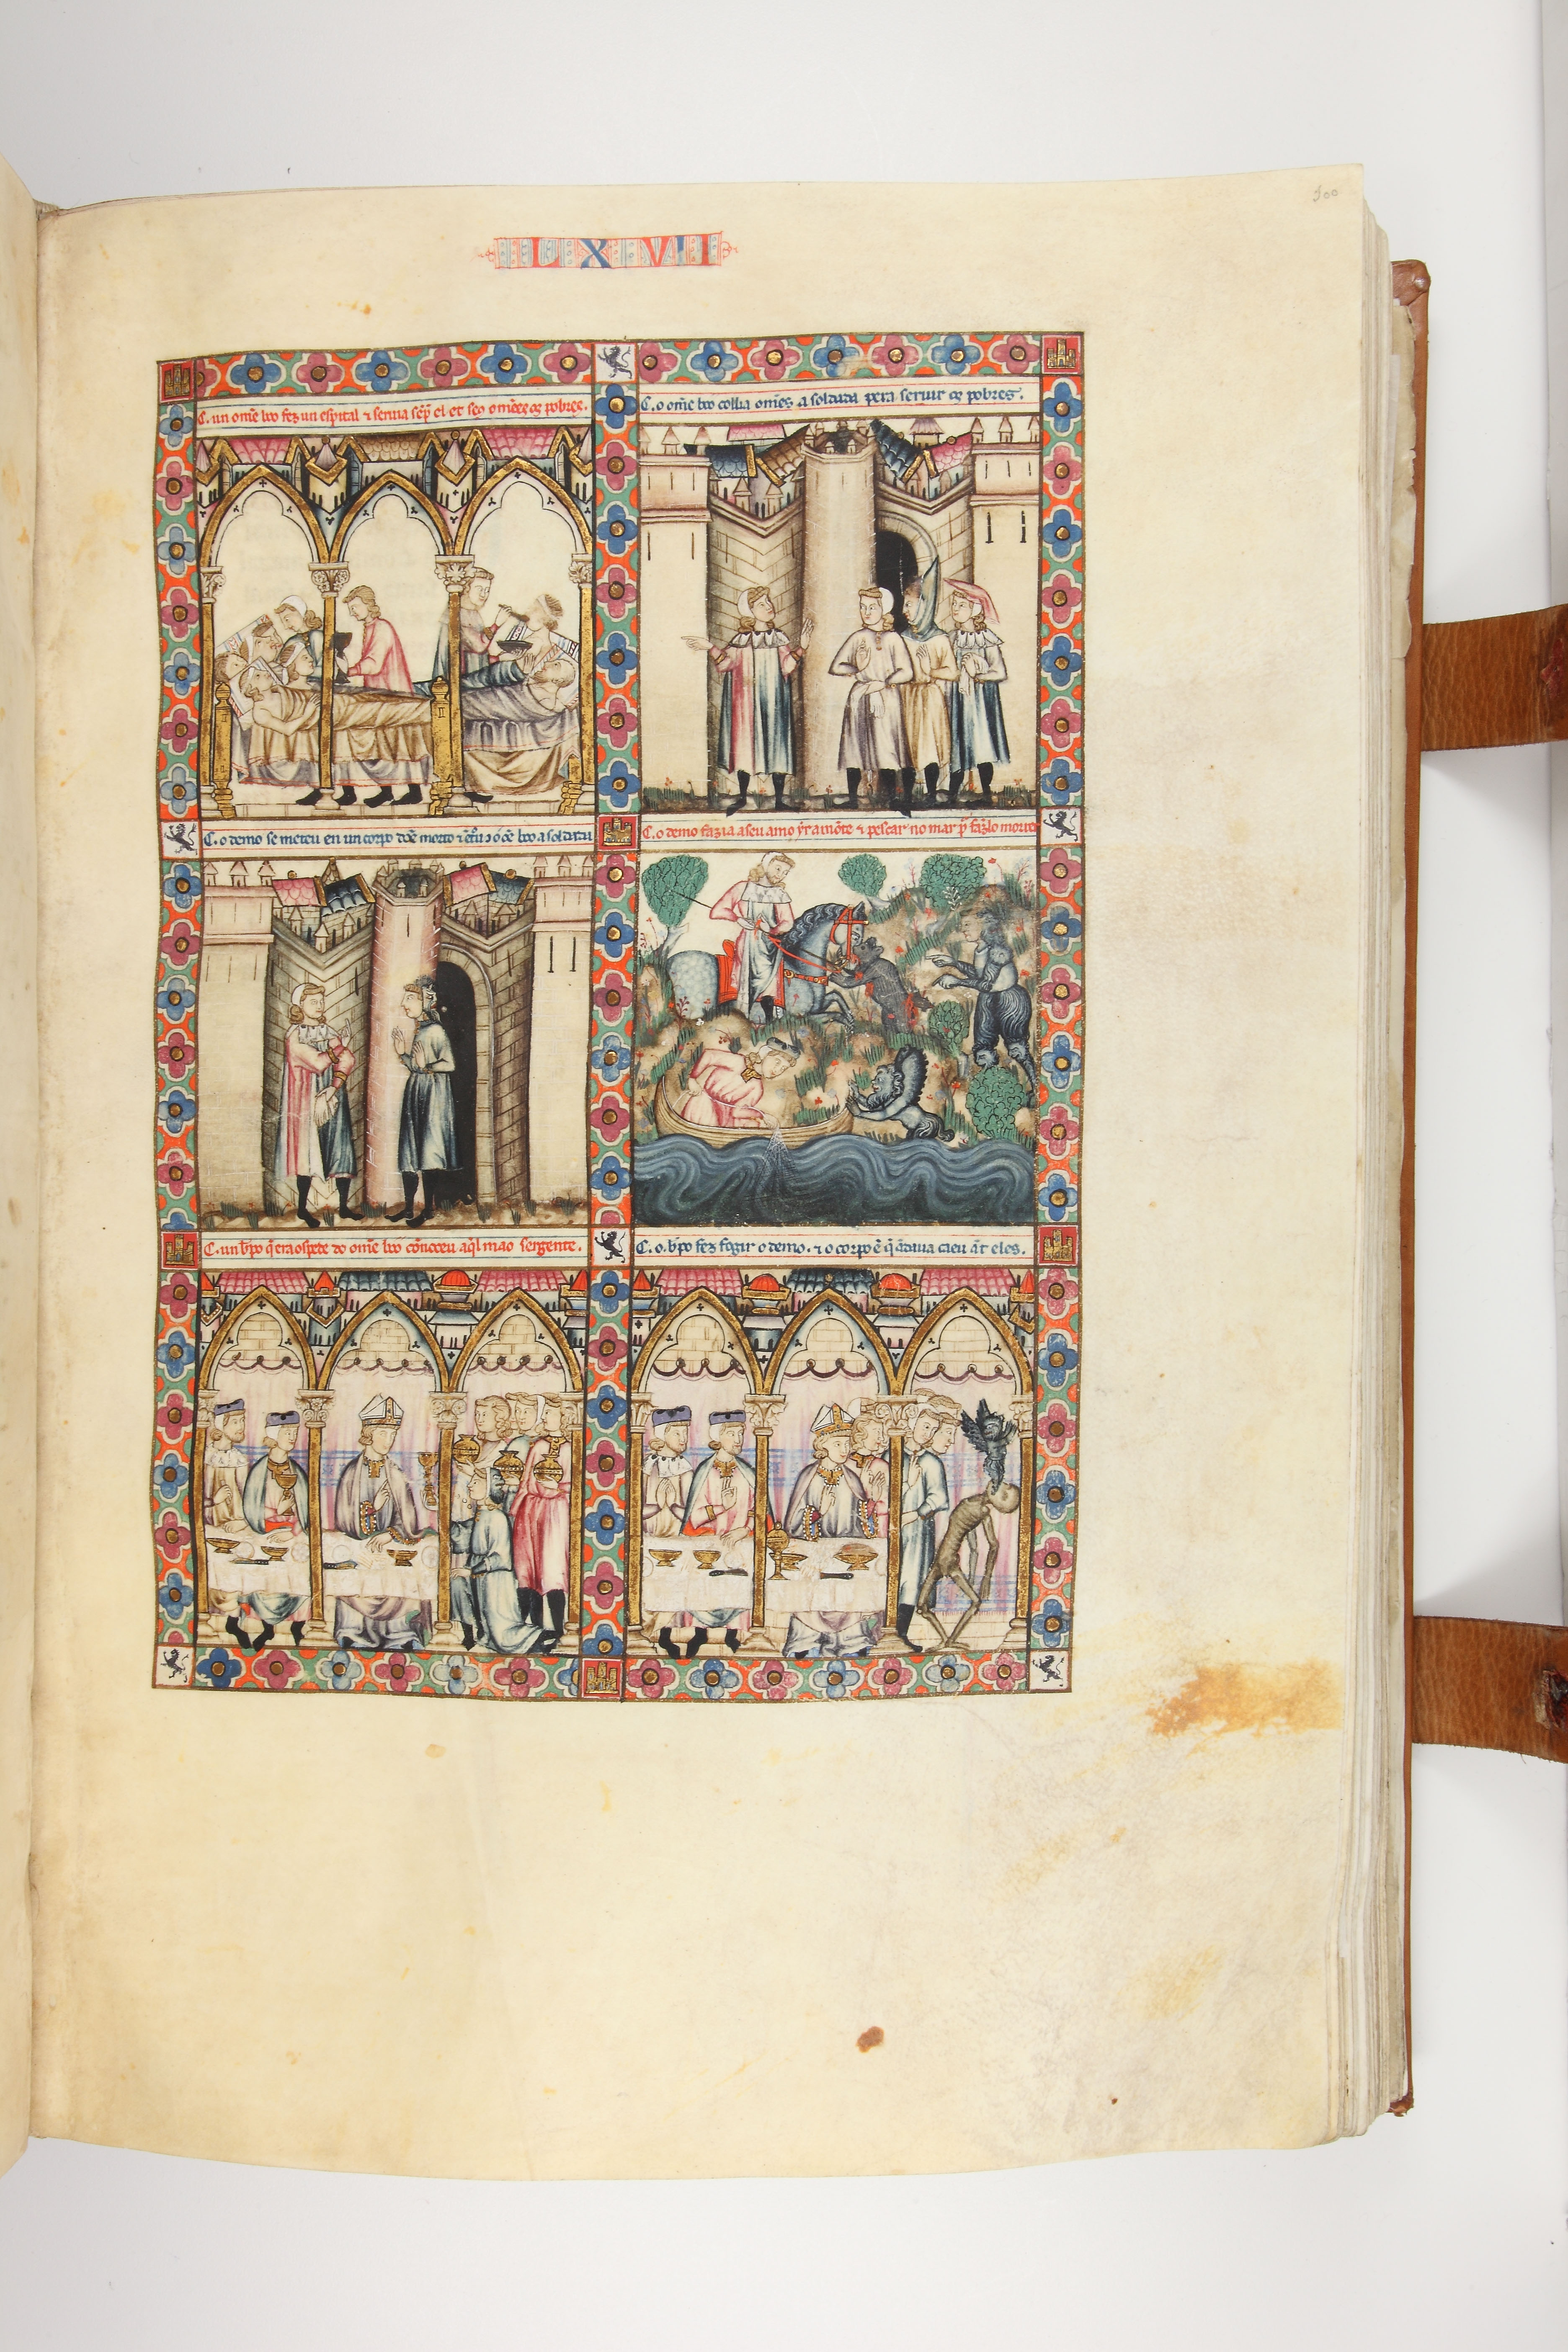 100
LXVII
C. un ome boo fez un espital ⁊ seruia sẽp̃ el et seꝯ omẽes oꝯ pobres.
C. o ome boo collia omẽs a soldada pera seruir oꝯ pobres.
C. o demo se meteu en un corpo morto ⁊ boo a soldada
C. o demo fazia a seu amo yr a mõte ⁊ pescar no mar p̃ fazelo morrer
C. un bp̃o q̃ era ospede do ome boo cõnoceu aq̃l mao sergente.
C. o. bp̃o fez fogir o demo. ⁊ o corpo ẽ q̃ ãdaua caeu ãt eles.